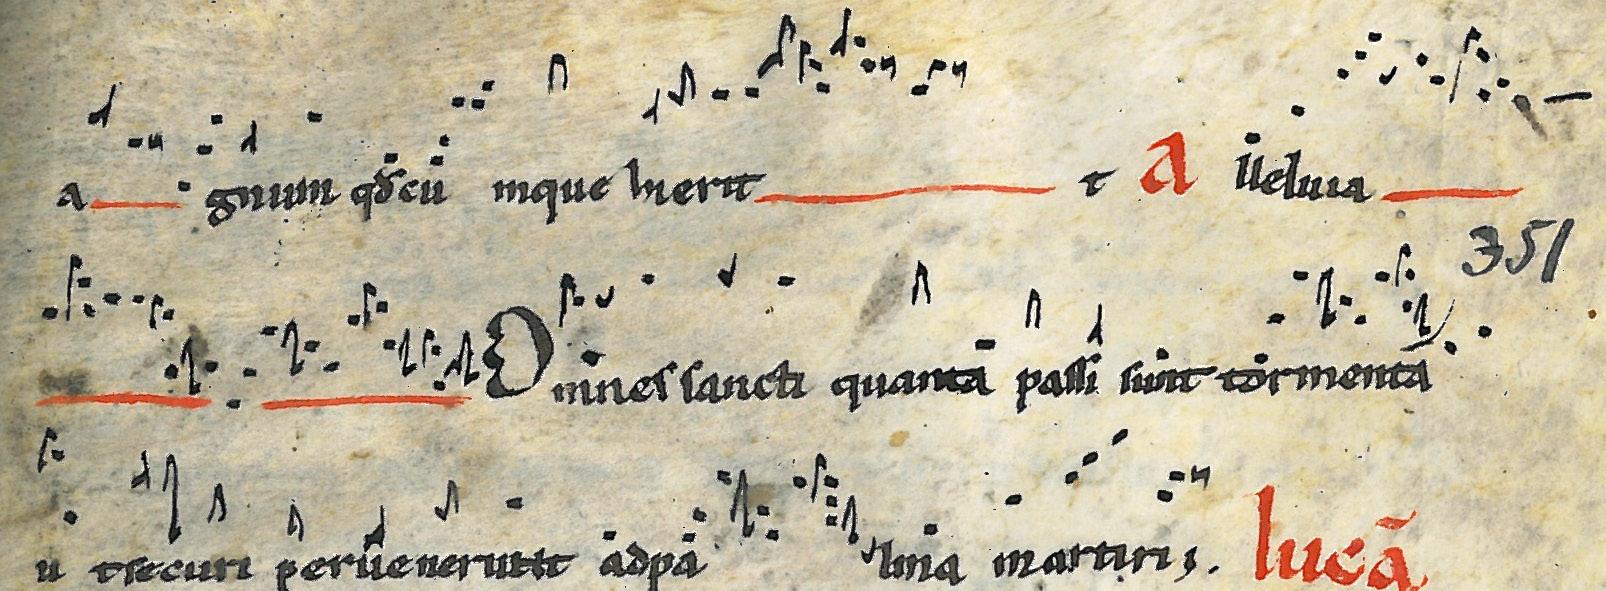 a gnum qd̄cū mque hierit t a lleluia
351
Omnes sancti quanta passi sunt tormenta
ut securi pervenerunt ad pa lma martiris. lucā